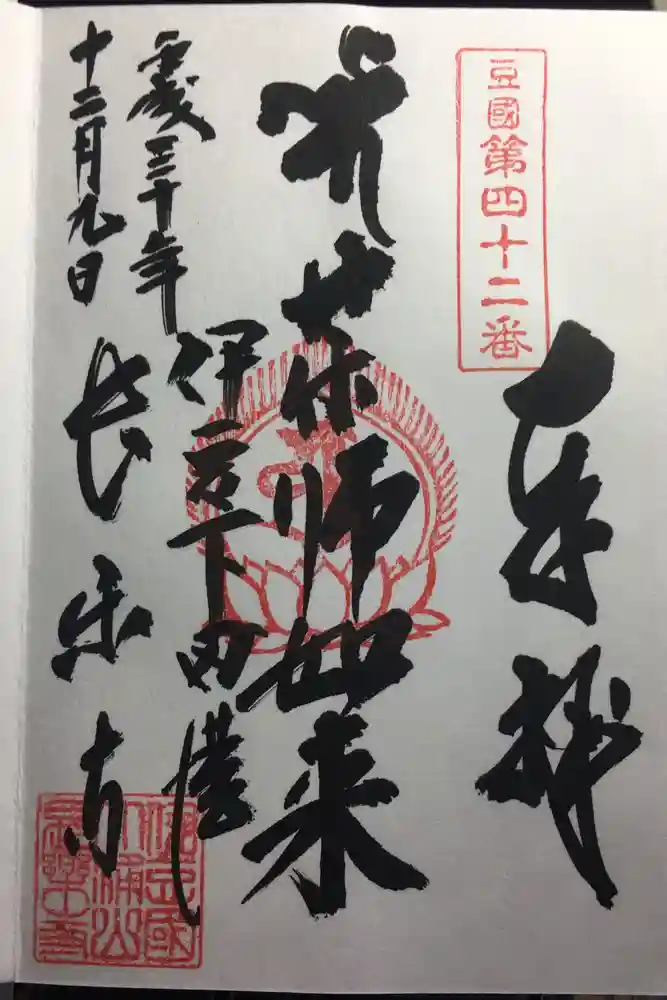 豆國第四十二番
奉拝
薬師如来
伊豆下田港
平成三十年
十二月九日
長楽寺